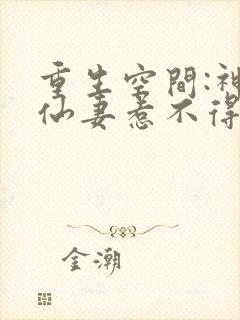 重生空間:神
仙妻惹不得
金潮